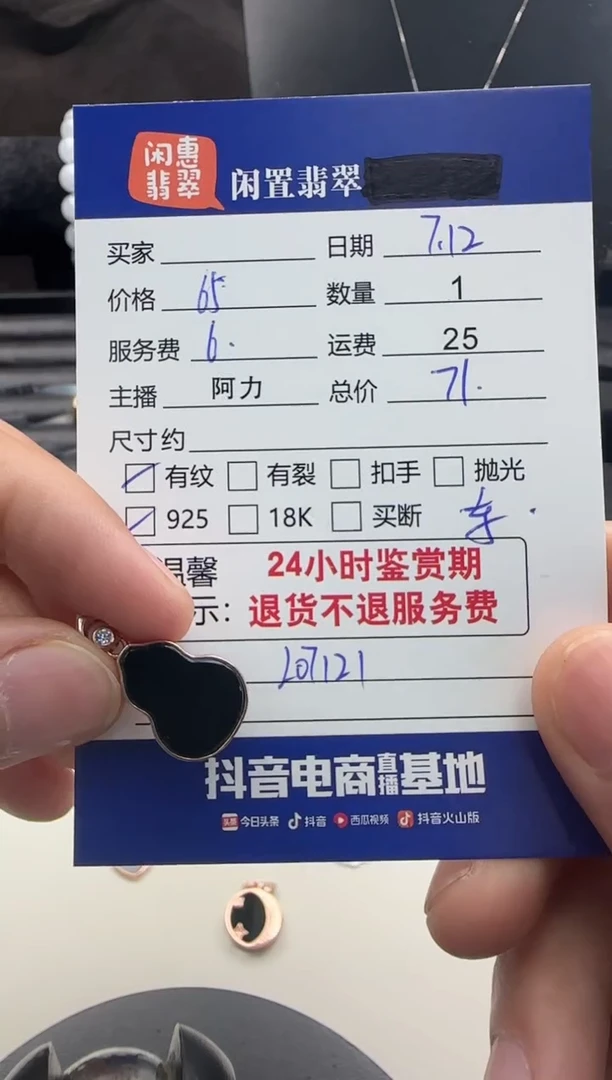 闲惠
翡翠
闲置翡翠
买家 日期 7.12
价格 65 数量 1
服务费 6. 运费 25
主播 阿力 总价 71.
尺寸约
有纹 有裂 扣手 抛光
925 18K 买断
温馨 24小时鉴赏期
示: 退货不退服务费
L07121
抖音电商直播基地
头条 今日头条 抖音 西瓜视频 抖音火山版